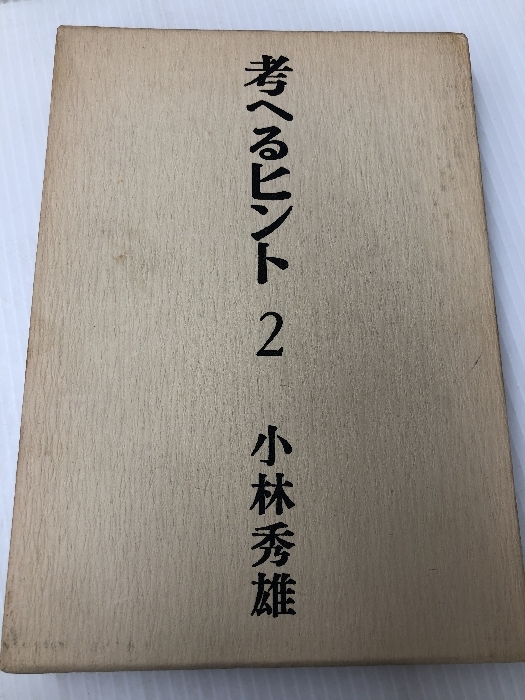 考へるヒント 2 小林秀雄